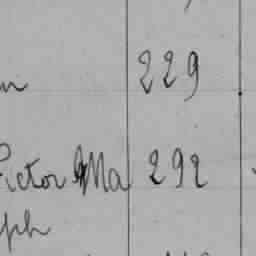 229
Victor Ma 292
ph